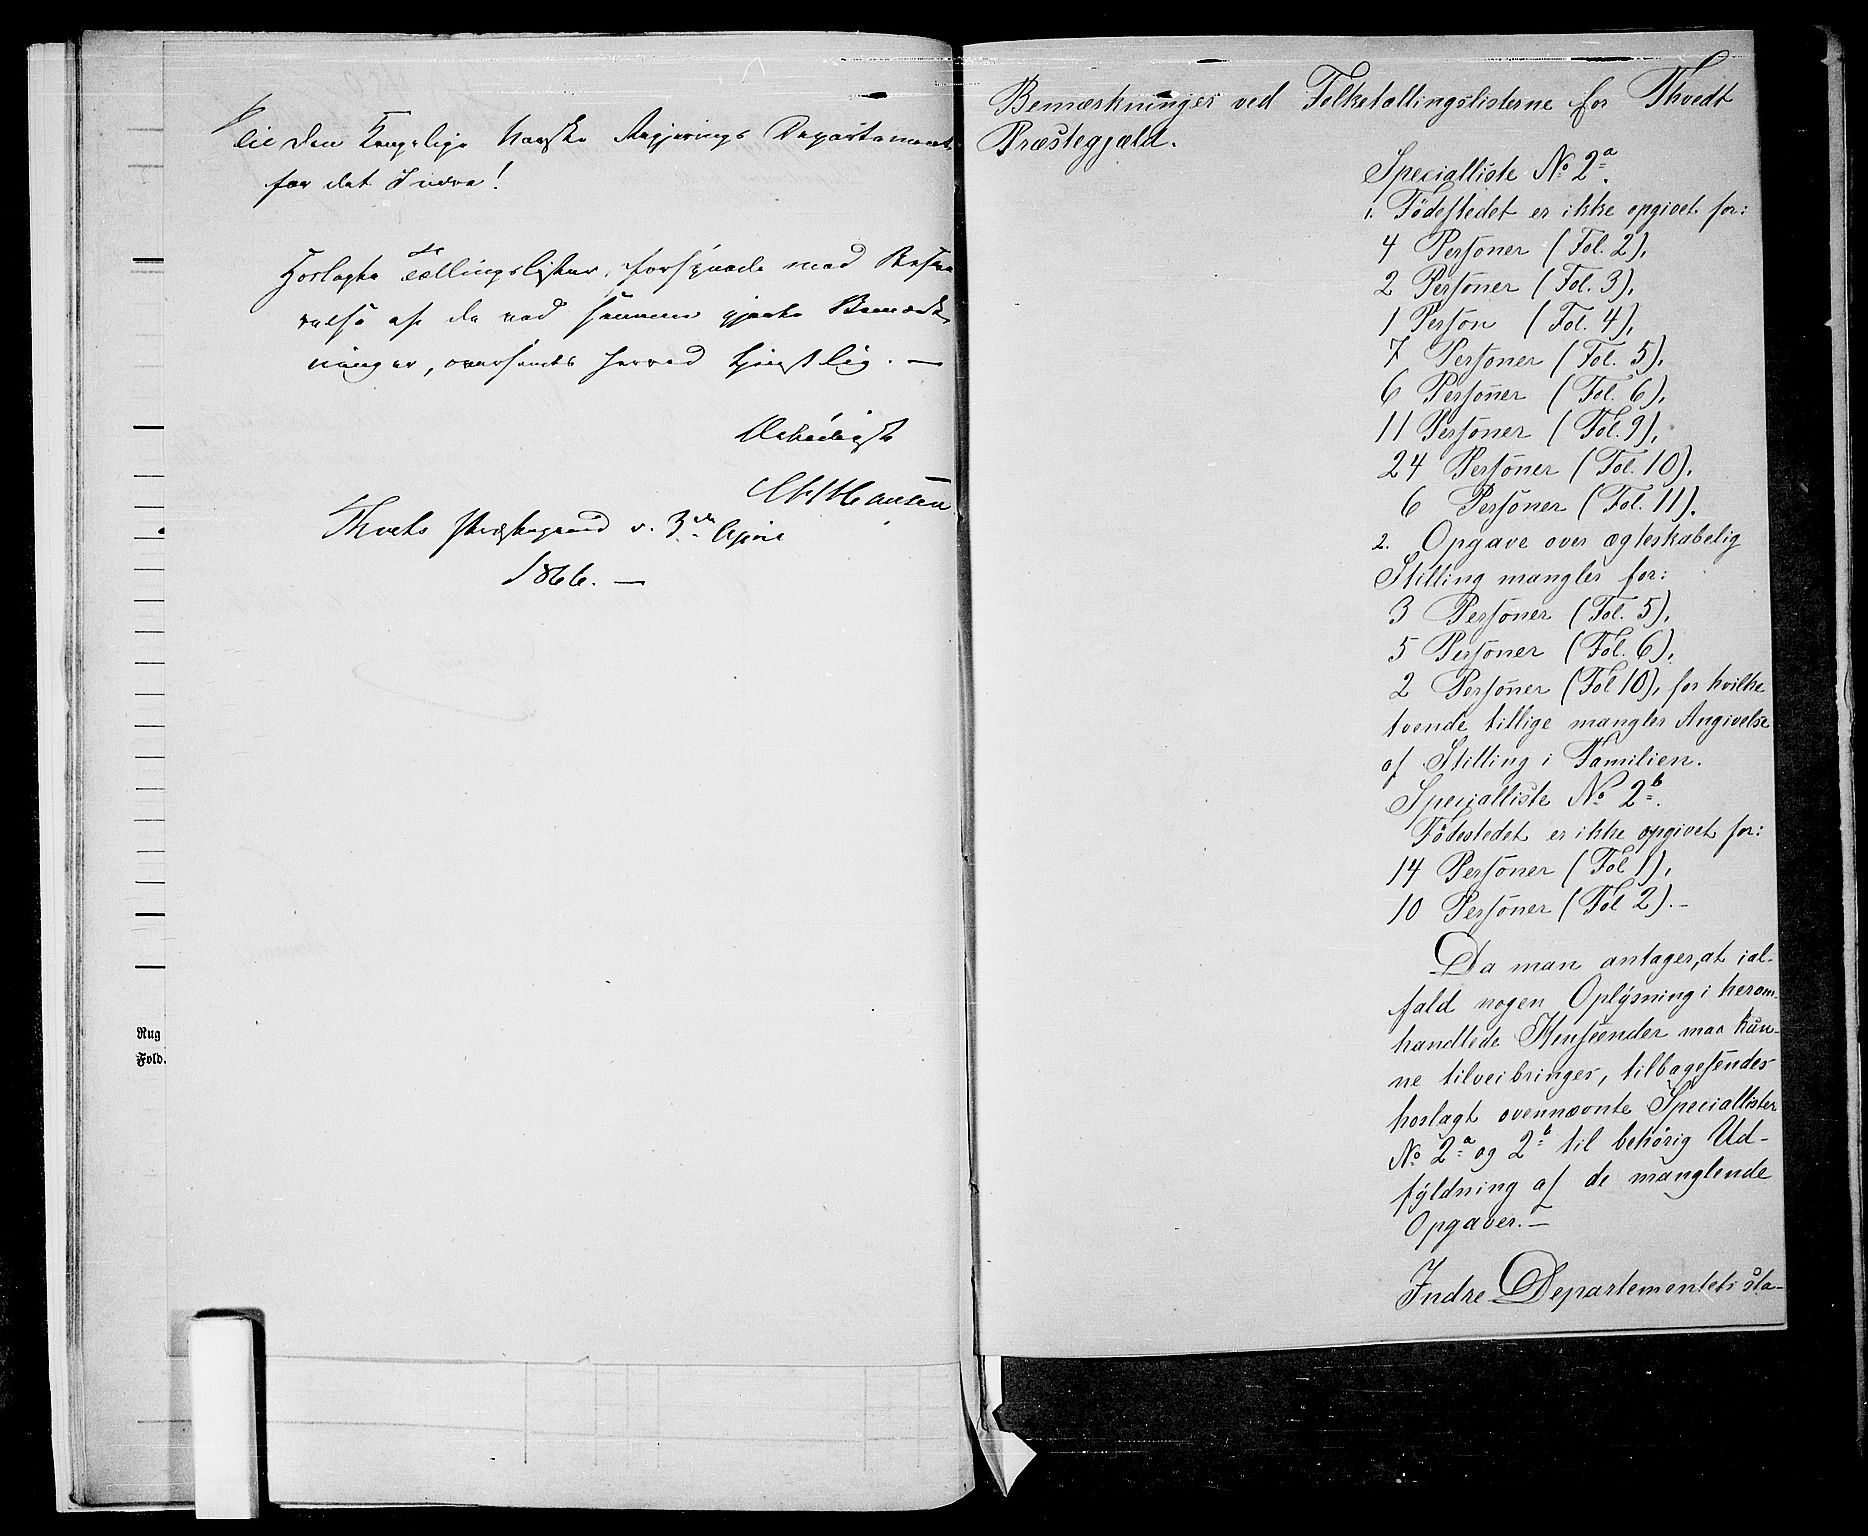 Til den Kongelige Norske Regjerings Departement
for det Indre!
Hoslagte Tællingslister, forsynede med Besva-
relse af de ved samme gjorte Bemærk-
ninger, oversendes herved tjenstlig. —
Ærbødigst
Hansen
Thveits Præstegaard d. 3die April
1866. —
Rug
Fold.
Bemærkninger ved Folketællingslisterne for Thvedt
Præstegjæld.
Specialliste No 2a.
1. Födestedet er ikke opgivet for:
4 Personer (Fol. 2),
2 Personer (Fol. 3),
1 Person (Fol. 4),
7 Personer (Fol. 5),
6 Personer (Fol. 6),
11 Personer (Fol. 9),
24 Personer (Fol. 10),
6 Personer (Fol. 11).
2. Opgave over ægteskabelig
Stilling mangler for:
3 Personer (Fol. 5),
5 Personer (Fol. 6),
2 Personer (Fol 10), for hvilke
tvende tillige mangler Angivelse
af Stilling i Familien.
Specialliste No 2b.
Födestedet er ikke opgivet for:
14 Personer (Fol 1),
10 Personer (Fol 2).—
Da man antager, at ial-
fald nogen Oplysning i herom-
handlede Henseender maa kun-
ne tilveibringes, tilbagesendes
hoslagt ovennævnte Speciallister
No 2a og 2b til behørig Ud-
fyldning af de manglende
Opgaver.—
Indre Departementets sta-